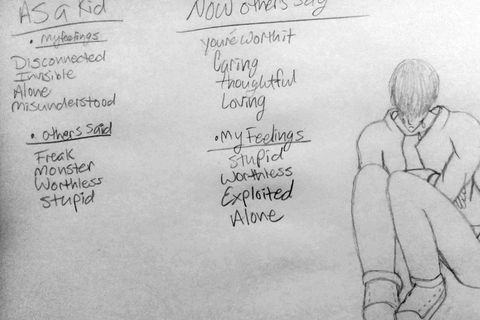 AS a Kid
• my feelings
Disconnected
Invisible
Alone
misunderstood
• others said
Freak
monster
Worthless
stupid
Now others say
you're worth it
Caring
thoughtful
Loving
• My Feelings
stupid
worthless
Exploited
Alone